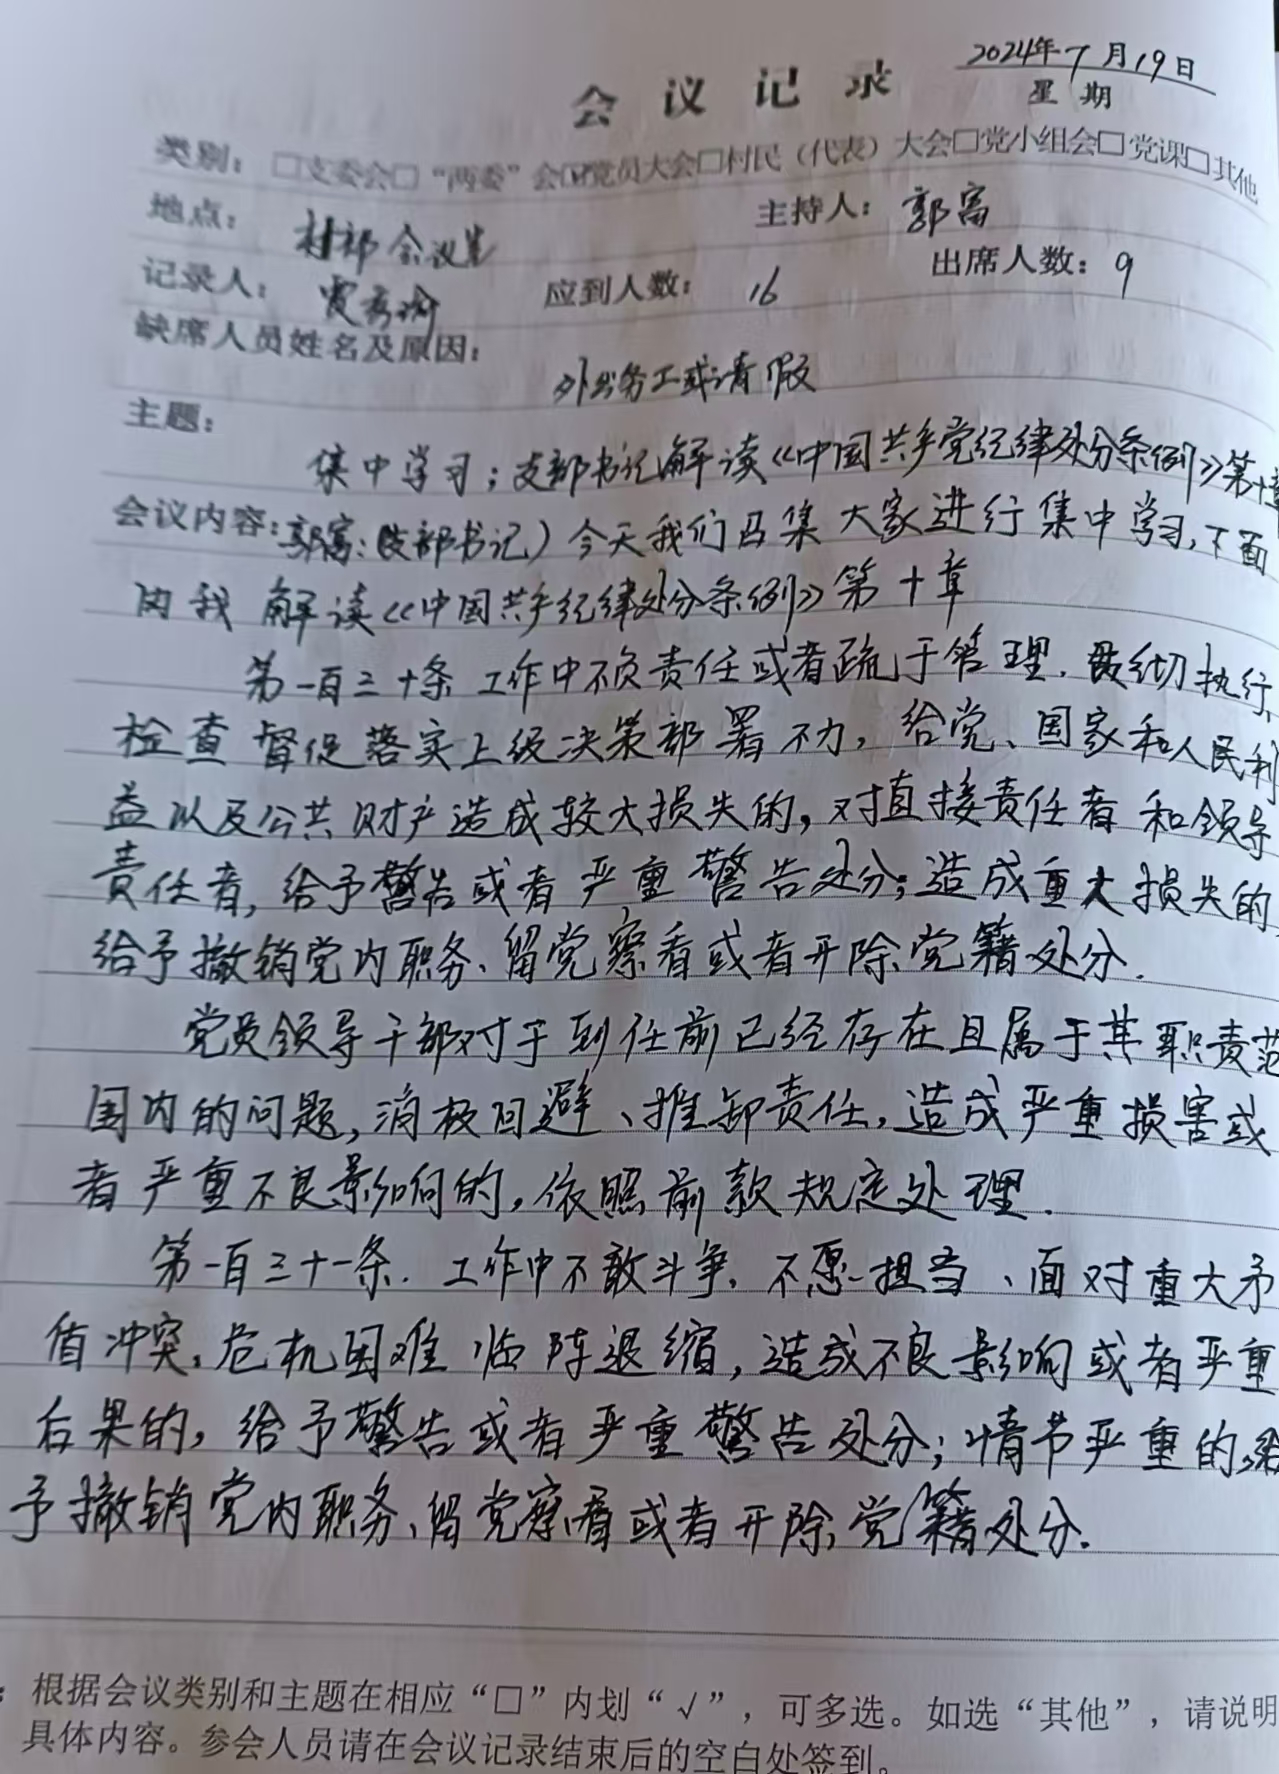 2024年7月19日
会议记录
星期
类别：□支委会□“两委”会☑党员大会□村民（代表）大会□党小组会□党课□其他
地点：村部会议室 主持人：郭富
记录人： 应到人数：16 出席人数：9
缺席人员姓名及原因：
外出务工或请假
主题：
集中学习；支部书记解读《中国共产党纪律处分条例》第十章
会议内容：郭富：（支部书记）今天我们召集大家进行集中学习，下面
由我解读《中国共产纪律处分条例》第十章
第一百三十条 工作中不负责任或者疏于管理．贯彻执行、
检查督促落实上级决策部署不力，给党、国家和人民利
益以及公共财产造成较大损失的，对直接责任者和领导
责任者，给予警告或者严重警告处分；造成重大损失的，
给予撤销党内职务、留党察看或者开除党籍处分．
党员领导干部对于到任前已经存在且属于其职责范
围内的问题，消极回避、推卸责任，造成严重损害或
者严重不良影响的，依照前款规定处理．
第一百三十一条．工作中不敢斗争．不愿担当、面对重大矛
盾冲突，危机困难临阵退缩，造成不良影响或者严重
后果的，给予警告或者严重警告处分；情节严重的，给
予撤销党内职务、留党察看或者开除党籍处分．
：根据会议类别和主题在相应“□”内划“√”，可多选。如选“其他”，请说明
具体内容。参会人员请在会议记录结束后的空白处签到。